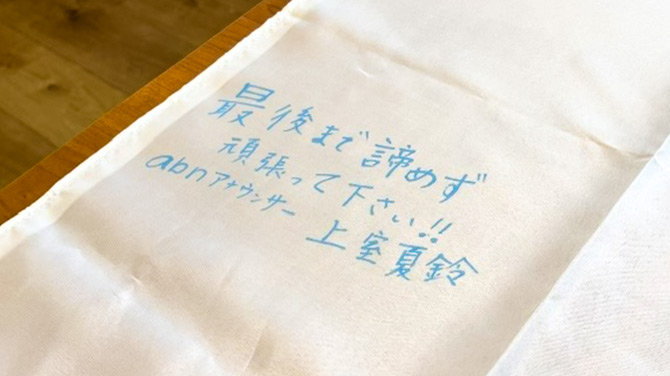 最後まで諦めず
頑張って下さい!!
abnアナウンサー
上室夏鈴